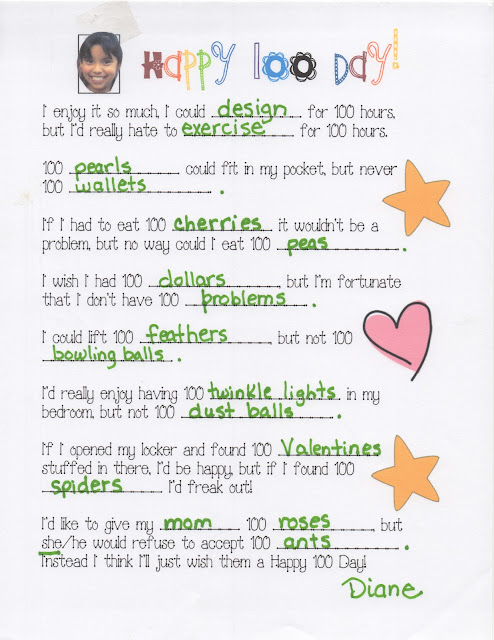 HAPPY 100 DAY!
I enjoy it so much, I could design for 100 hours,
but I'd really hate to exercise for 100 hours.
100 pearls could fit in my pocket, but never
100 wallets.
If I had to eat 100 cherries it wouldn't be a
problem, but no way could I eat 100 peas.
I wish I had 100 dollars, but I'm fortunate
that I don't have 100 problems.
I could lift 100 feathers, but not 100
bowling balls.
I'd really enjoy having 100 twinkle lights in my
bedroom, but not 100 dust balls.
If I opened my locker and found 100 Valentines
stuffed in there, I'd be happy, but if I found 100
spiders I'd freak out!
I'd like to give my mom 100 roses, but
she/he would refuse to accept 100 ants.
Instead I think I'll just wish them a Happy 100 Day!
Diane